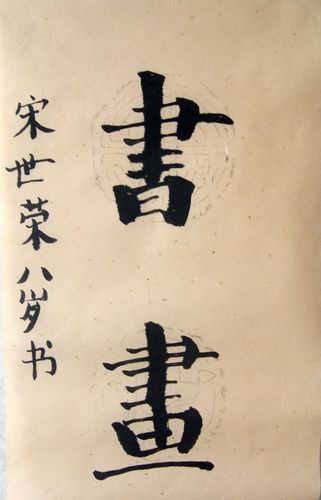 書畫
宋世荣八岁书